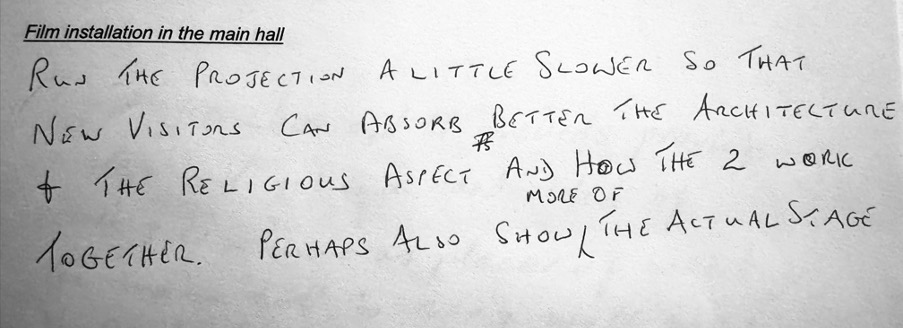 Film installation in the main hall
RUN THE PROJECTION A LITTLE SLOWER SO THAT
NEW VISITORS CAN ABSORB BETTER THE ARCHITECTURE
& THE RELIGIOUS ASPECT AND HOW THE 2 WORK
MORE OF
TOGETHER. PERHAPS ALSO SHOW THE ACTUAL STAGE